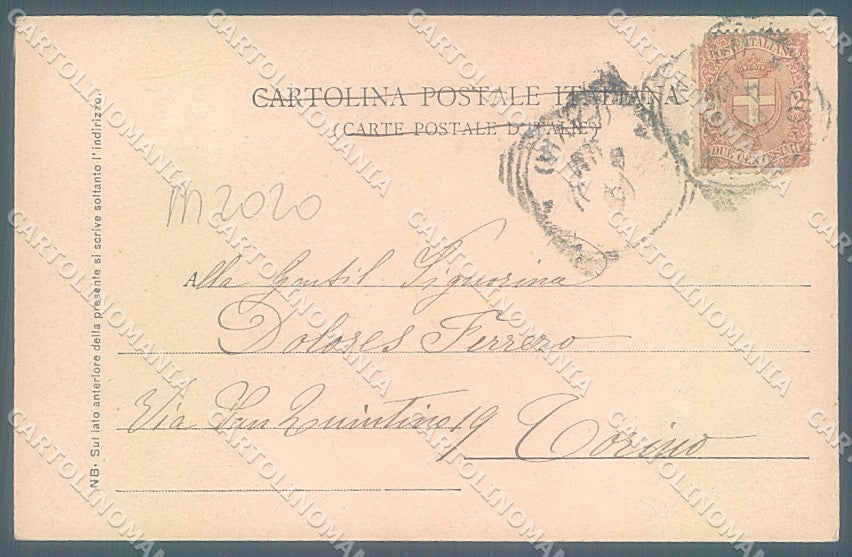 CARTOLINA POSTALE ITALIANA
(CARTE POSTALE D'ITALIE)
POSTE ITALIANE
DUE CENTESIMI
M2020
Alla Gentil Signorina
Dolores Ferrero
Via San Quintino 19
Torino
NB. Sul lato anteriore della presente si scrive soltanto l'indirizzo.
CARTOLINOMANIA